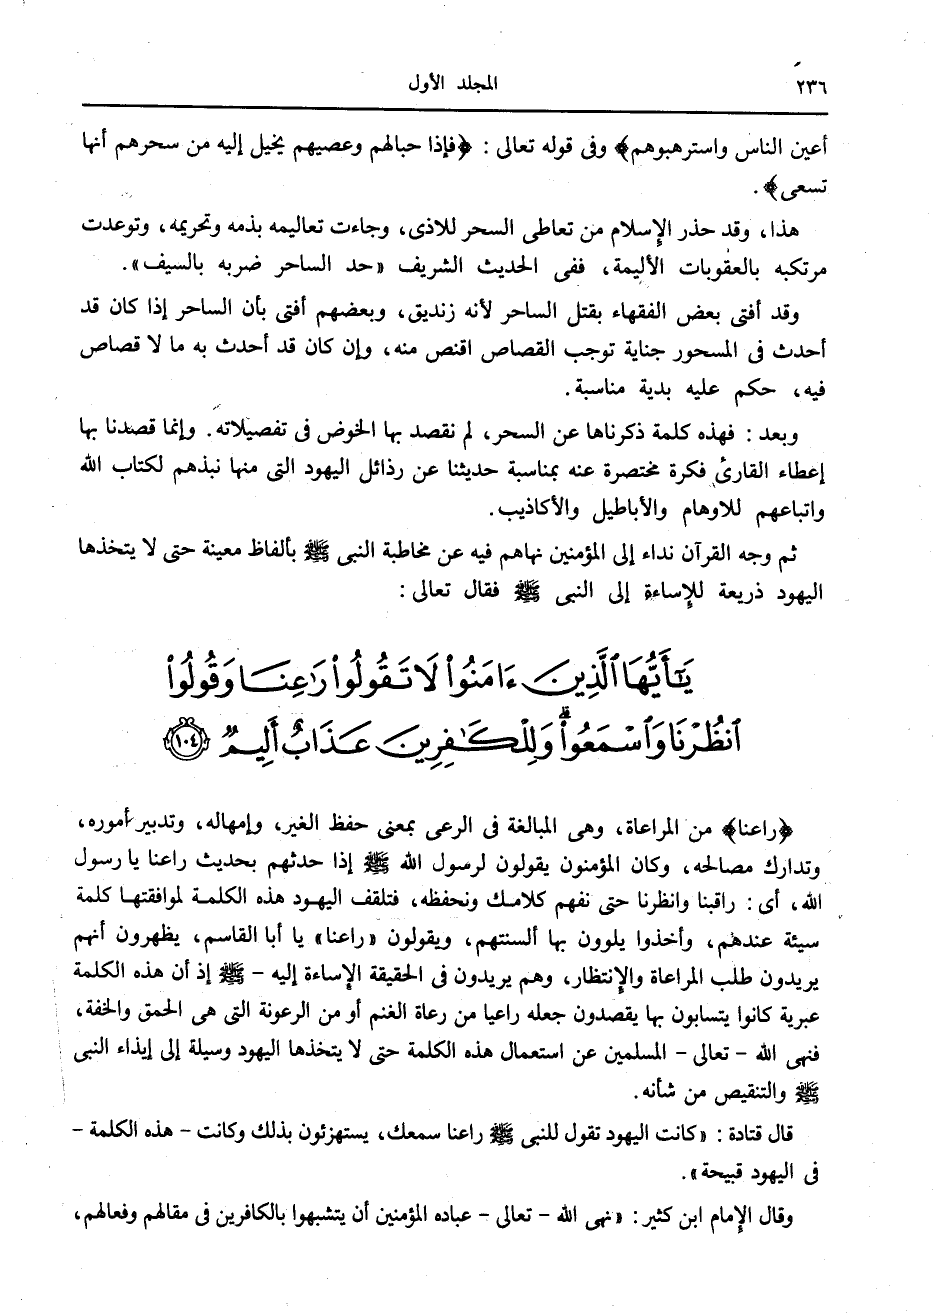 ٢٣٦ المجلد الأول
أعين الناس واسترهبوهم﴾ وفى قوله تعالى : ﴿فإذا حبالهم وعصيهم يخيل إليه من سحرهم أنها
تسعى﴾ .
هذا، وقد حذر الإسلام من تعاطى السحر للاذى، وجاءت تعاليمه بذمه وتحريمه، وتوعدت
مرتكبه بالعقوبات الأليمة، ففى الحديث الشريف «حد الساحر ضربه بالسيف».
وقد أفتى بعض الفقهاء بقتل الساحر لأنه زنديق، وبعضهم أفتى بأن الساحر إذا كان قد
أحدث فى المسحور جناية توجب القصاص اقتص منه، وإن كان قد أحدث به ما لا قصاص
فيه، حكم عليه بدية مناسبة.
وبعد : فهذه كلمة ذكرناها عن السحر، لم نقصد بها الخوض فى تفصيلاته. وإنما قصدنا بها
إعطاء القارئ فكرة مختصرة عنه بمناسبة حديثنا عن رذائل اليهود التى منها نبذهم لكتاب الله
واتباعهم للاوهام والأباطيل والأكاذيب.
ثم وجه القرآن نداء إلى المؤمنين نهاهم فيه عن مخاطبة النبى ﷺ بألفاظ معينة حتى لا يتخذها
اليهود ذريعة للإساءة إلى النبى ﷺ فقال تعالى :
يَٰٓأَيُّهَا ٱلَّذِينَ ءَامَنُواْ لَا تَقُولُواْ رَٰعِنَا وَقُولُواْ
ٱنظُرْنَا وَٱسْمَعُواْ ۗ وَلِلْكَٰفِرِينَ عَذَابٌ أَلِيمٌ ١٠٤
﴿راعنا﴾ من المراعاة، وهى المبالغة فى الرعى بمعنى حفظ الغير، وإمهاله، وتدبير أموره،
وتدارك مصالحه، وكان المؤمنون يقولون لرسول الله ﷺ إذا حدثهم بحديث راعنا يا رسول
الله، أى : راقبنا وانظرنا حتى نفهم كلامك ونحفظه، فتلقف اليهود هذه الكلمة لموافقتها كلمة
سيئة عندهم، وأخذوا يلوون بها ألسنتهم، ويقولون «راعنا» يا أبا القاسم، يظهرون أنهم
يريدون طلب المراعاة والإنتظار، وهم يريدون فى الحقيقة الإساءة إليه - ﷺ إذ أن هذه الكلمة
عبرية كانوا يتسابون بها يقصدون جعله راعيا من رعاة الغنم أو من الرعونة التى هى الحمق والخفة،
فنهى الله - تعالى - المسلمين عن استعمال هذه الكلمة حتى لا يتخذها اليهود وسيلة إلى إيذاء النبى
ﷺ والتنقيص من شأنه.
قال قتادة : «كانت اليهود تقول للنبى ﷺ راعنا سمعك، يستهزئون بذلك وكانت - هذه الكلمة -
فى اليهود قبيحة».
وقال الإمام ابن كثير: «نهى الله - تعالى - عباده المؤمنين أن يتشبهوا بالكافرين فى مقالهم وفعالهم،